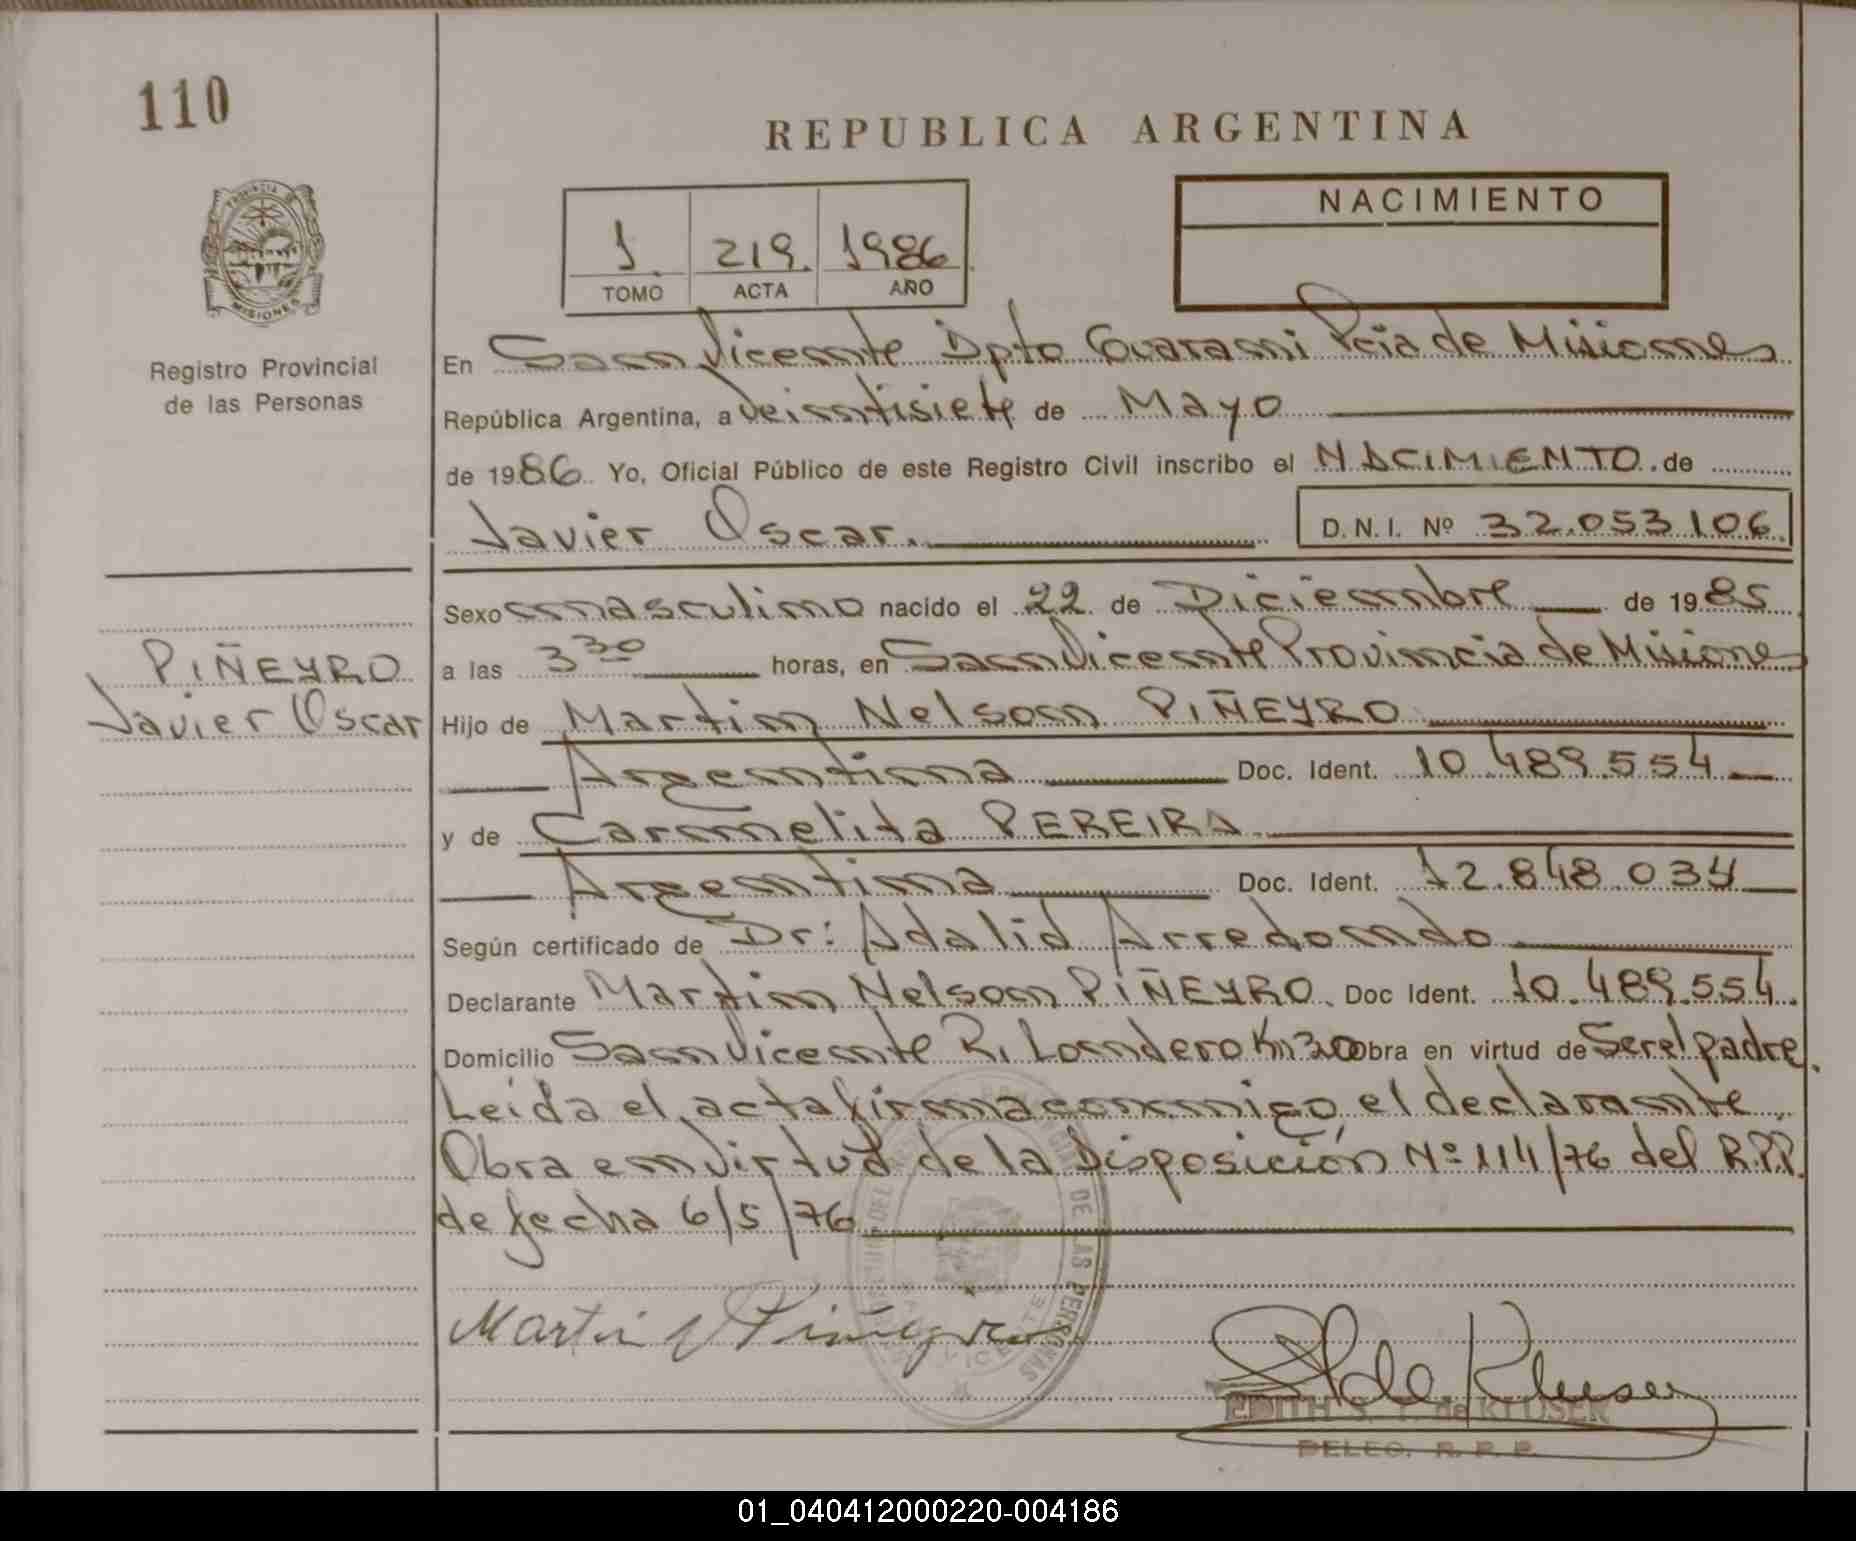 110
REPUBLICA ARGENTINA
NACIMIENTO
1 219 1986
TOMO ACTA AÑO
PROVINCIA DE
MISIONES
Registro Provincial
de las Personas
En San Vicente Dpto Guarani Pcia de Misiones
República Argentina, a Veintisiete de Mayo
de 1986. Yo, Oficial Público de este Registro Civil inscribo el NACIMIENTO. de
Javier Oscar. D.N.I. Nº 32.053.106
Sexo masculino nacido el 22 de Diciembre de 1985
a las 3 30 horas, en San Vicente Provincia de Misiones
PIÑEYRO
Javier Oscar
Hijo de Martin Nelson PIÑEYRO
Argentina Doc. Ident. 10.489.554
y de Carmelita PEREIRA
Argentina Doc. Ident. 12.848.034
Según certificado de Dr: Adalid Arredondo
Declarante Martin Nelson PIÑEYRO. Doc Ident. 10.489.554.
Domicilio San Vicente R. Londero Km 20 obra en virtud de Ser el padre.
Leida el acta firma conmigo, el declarante.
Obra en virtud de la Disposición Nº 114/76 del R.P.P.
de fecha 6/5/76
Martin N Piñeyro
DE LAS PERSONAS
EDITH S. T. de KLUSER
DELEG. R. P. P.
01_040412000220-004186